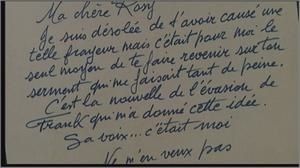 Ma chère Rosy
Je suis désolée de t'avoir causé une
telle frayeur mais c'était pour moi le
seul moyen de te faire revenir sur ton
serment qui me faisait tant de peine.
C'est la nouvelle de l'évasion de
Franck qui m'a donné cette idée.
Sa voix... c'était moi
Ne m'en veux pas